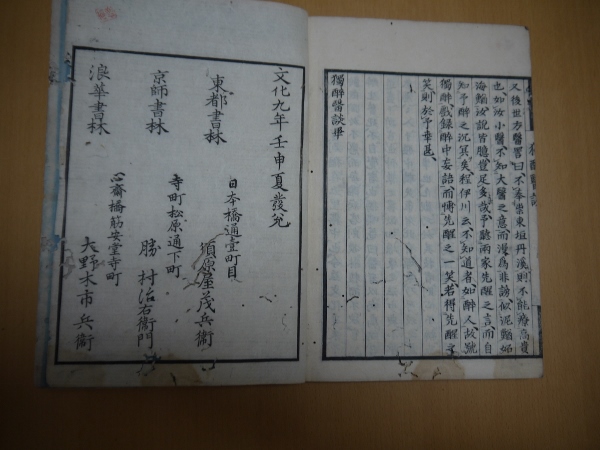 又後世方醫罵曰不奉崇東垣丹溪則不能療高貴
也如汝小醫不知大醫之意而漫為非謗似泥鰌
海鰌汝説皆臆豈足多哉予聽兩家先醒之言而自
知予醉之沉冥矣程伊川云不知道者如醉人故號
獨醉戲録醉中妄語而博先醒之一笑若得先醒之
笑則於予幸甚
獨醉醫談畢
文化九年壬申夏發兌
東都書林
日本橋通壹町目
須原屋茂兵衛
京師書林
寺町松原通下町
勝村治右衛門
浪華書林
心齋橋筋安堂寺町
大野木市兵衛